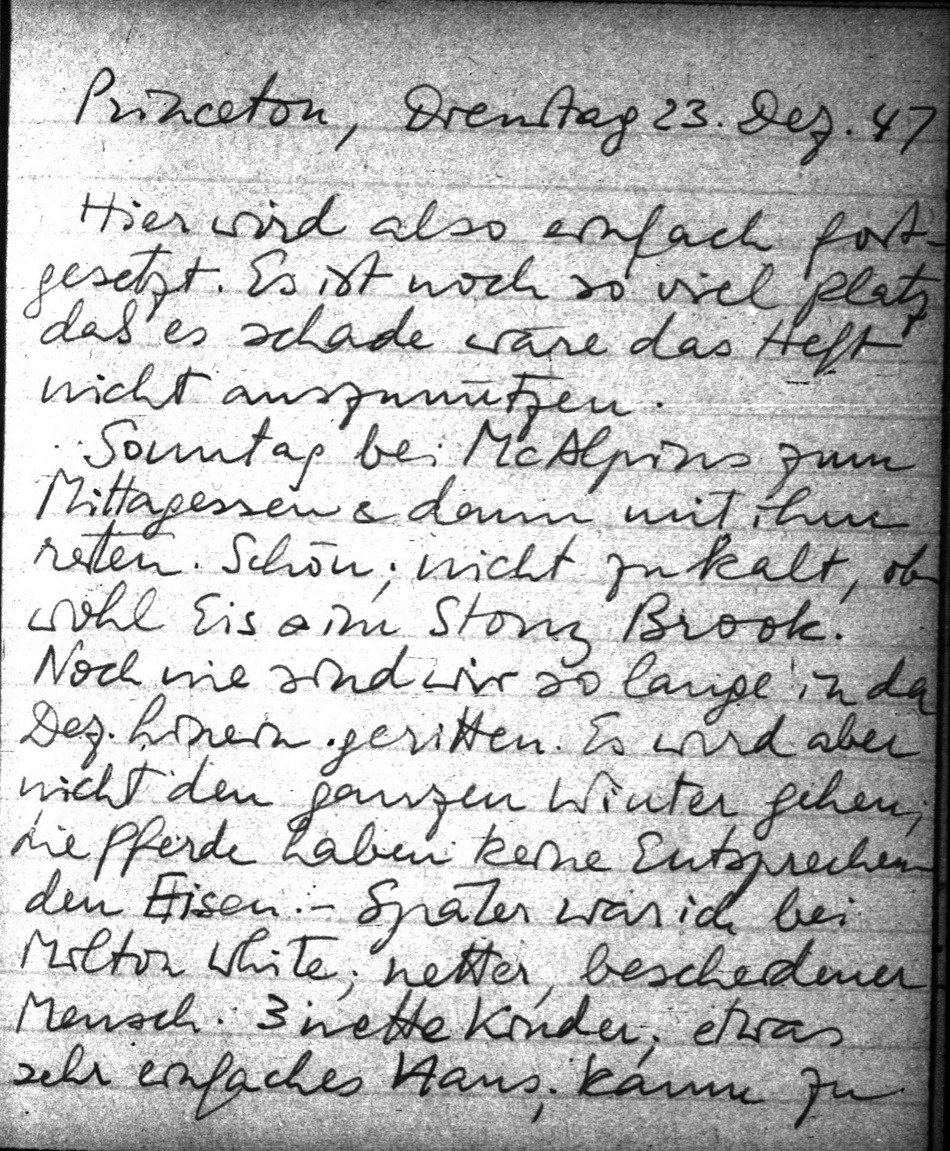 Princeton, Dienstag 23. Dez. 47
Hier wird also einfach fort-
gesetzt. Es ist noch so viel Platz,
daß es schade wäre das Heft
nicht auszunützen.
Sonntag bei McAlpins zum
Mittagessen & dann mit ihm
reiten. Schön; nicht zu kalt, ob
wohl Eis im Stony Brook.
Noch nie sind wir so lange in den
Dez. hinein geritten. Es wird aber
nicht den ganzen Winter gehen;
die Pferde haben keine Entsprechen
den Eisen. – Später war ich bei
Milton White; netter, bescheidener
Mensch. 3 nette Kinder; etwas
sehr einfaches Haus; kaum zu